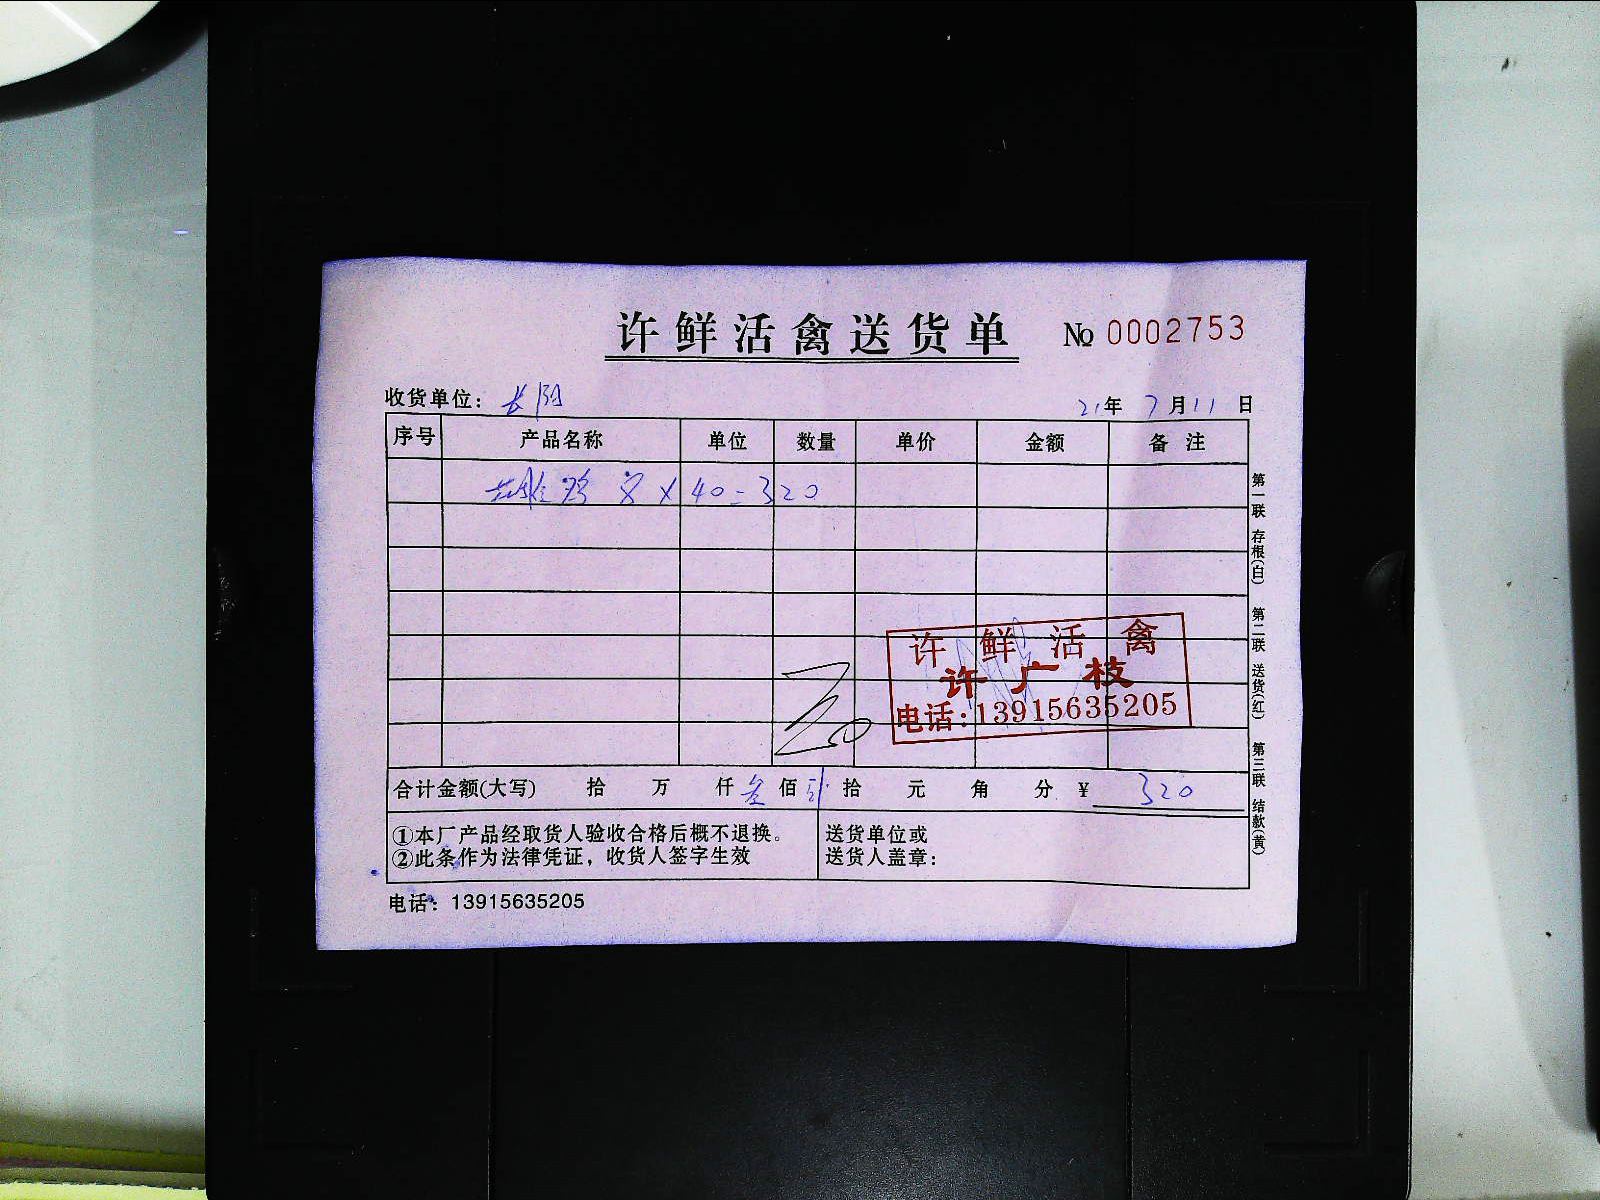 许鲜活禽送货单 № 0002753
收货单位： 长阳 21年 7月11日
序号 产品名称 单位 数量 单价 金额 备注
鸡 8×40=320
许鲜活禽
许广枝
电话：13915635205
合计金额(大写) 拾 万 仟 叁 佰 贰 拾 元 角 分 ¥ 320
①本厂产品经取货人验收合格后概不退换。
②此条作为法律凭证，收货人签字生效
送货单位或
送货人盖章：
电话：13915635205
第一联 存根(白) 第二联 送货(红) 第三联 结款(黄)